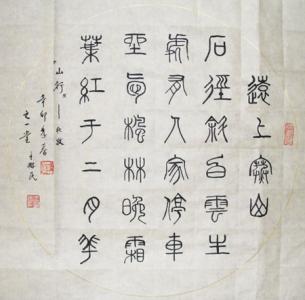 遠上寒山
石徑斜白雲生
處有人家停車
坐愛楓林晚霜
葉紅于二月華
"山行"——杜牧
辛卯